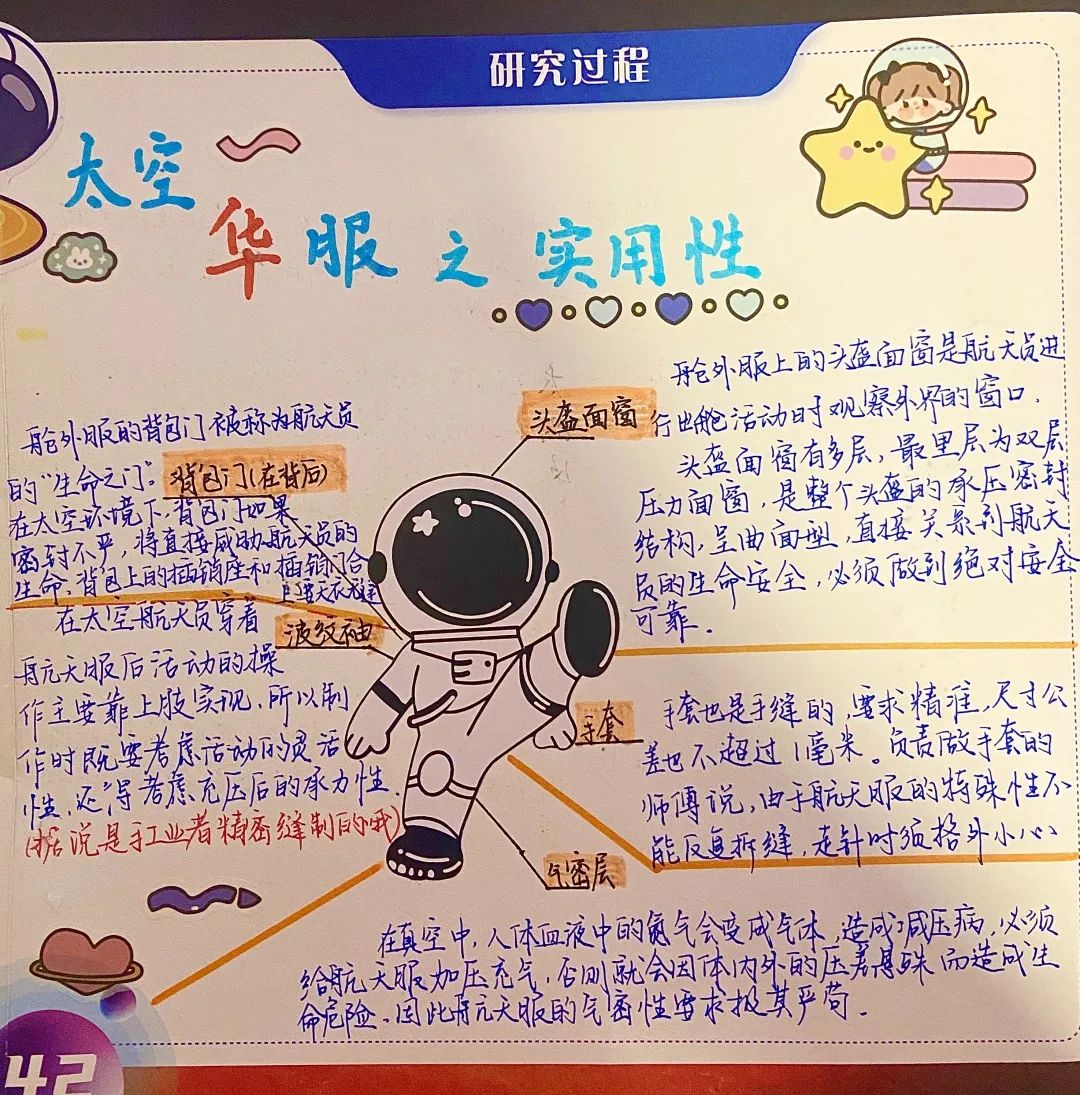 研究过程
太空
华服之实用性
头盔面窗
舱外服上的头盔面窗是航天员进
行出舱活动时观察外界的窗口.
头盔面窗有多层,最里层为双层
压力面窗,是整个头盔的承压密封
结构,呈曲面型,直接关系到航天
员的生命安全,必须做到绝对安全
可靠.
舱外服的背包门被称为航天员
的“生命之门”.
背包门(在背后)
在太空环境下,背包门如果
密封不严,将直接威胁航天员的
生命,背包上的插销座和插销门合
在太空航天员穿着
波纹袖
航天服后活动的操
作主要靠上肢实现,所以制
作时既要考虑活动的灵活
性,还得考虑充压后的承力性.
(据说是手工业者精密缝制的哦)
手套
手套也是手缝的,要求精准,尺寸公
差也不超过1毫米。负责做手套的
师傅说,由于航天服的特殊性不
能反复拆缝,走针时须格外小心
气密层
在真空中,人体血液中的氮气会变成气体,造成减压病,必须
给航天服加压充气,否则就会因体内外的压差悬殊而造成生
命危险.因此航天服的气密性要求极其严苛.
42